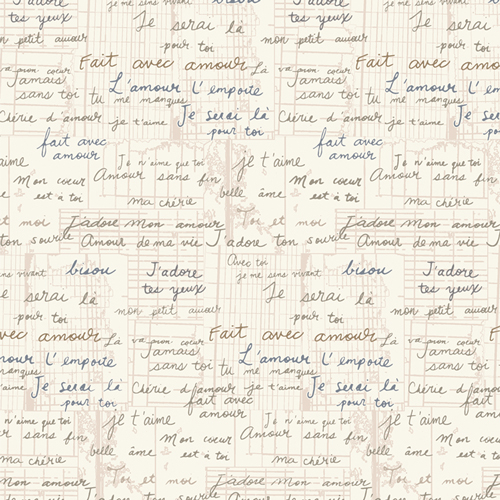 J'adore
je me sens vivant
tes yeux
Je serai là
mon petit amour
pour toi
Fait avec amour
Là
va mon coeur
Jamais
L'amour l'emporte
sans toi
tu me manques
Chérie d'amour
je t'aime
Je serai là
pour toi
fait avec
amour
Je n'aime que toi
je t'aime
Mon coeur
est à toi
Amour sans fin
belle âme
ma chérie
Toi et moi
J'adore mon amour
ton sourire
Amour de ma vie
J'adore ton sourire
Avec toi
je me sens vivant
bisou
J'adore
tes yeux
Je serai là
pour toi
mon petit amour
Fait avec amour
Là
va mon coeur
Jamais
L'amour l'emporte
sans toi
tu me manques
Je serai là
pour toi
Chérie d'amour
je t'aime
fait avec
amour
je t'aime
Je n'aime que toi
Amour sans fin
Mon coeur
est à toi
belle âme
ma chérie
Toi et moi
J'adore mon amour